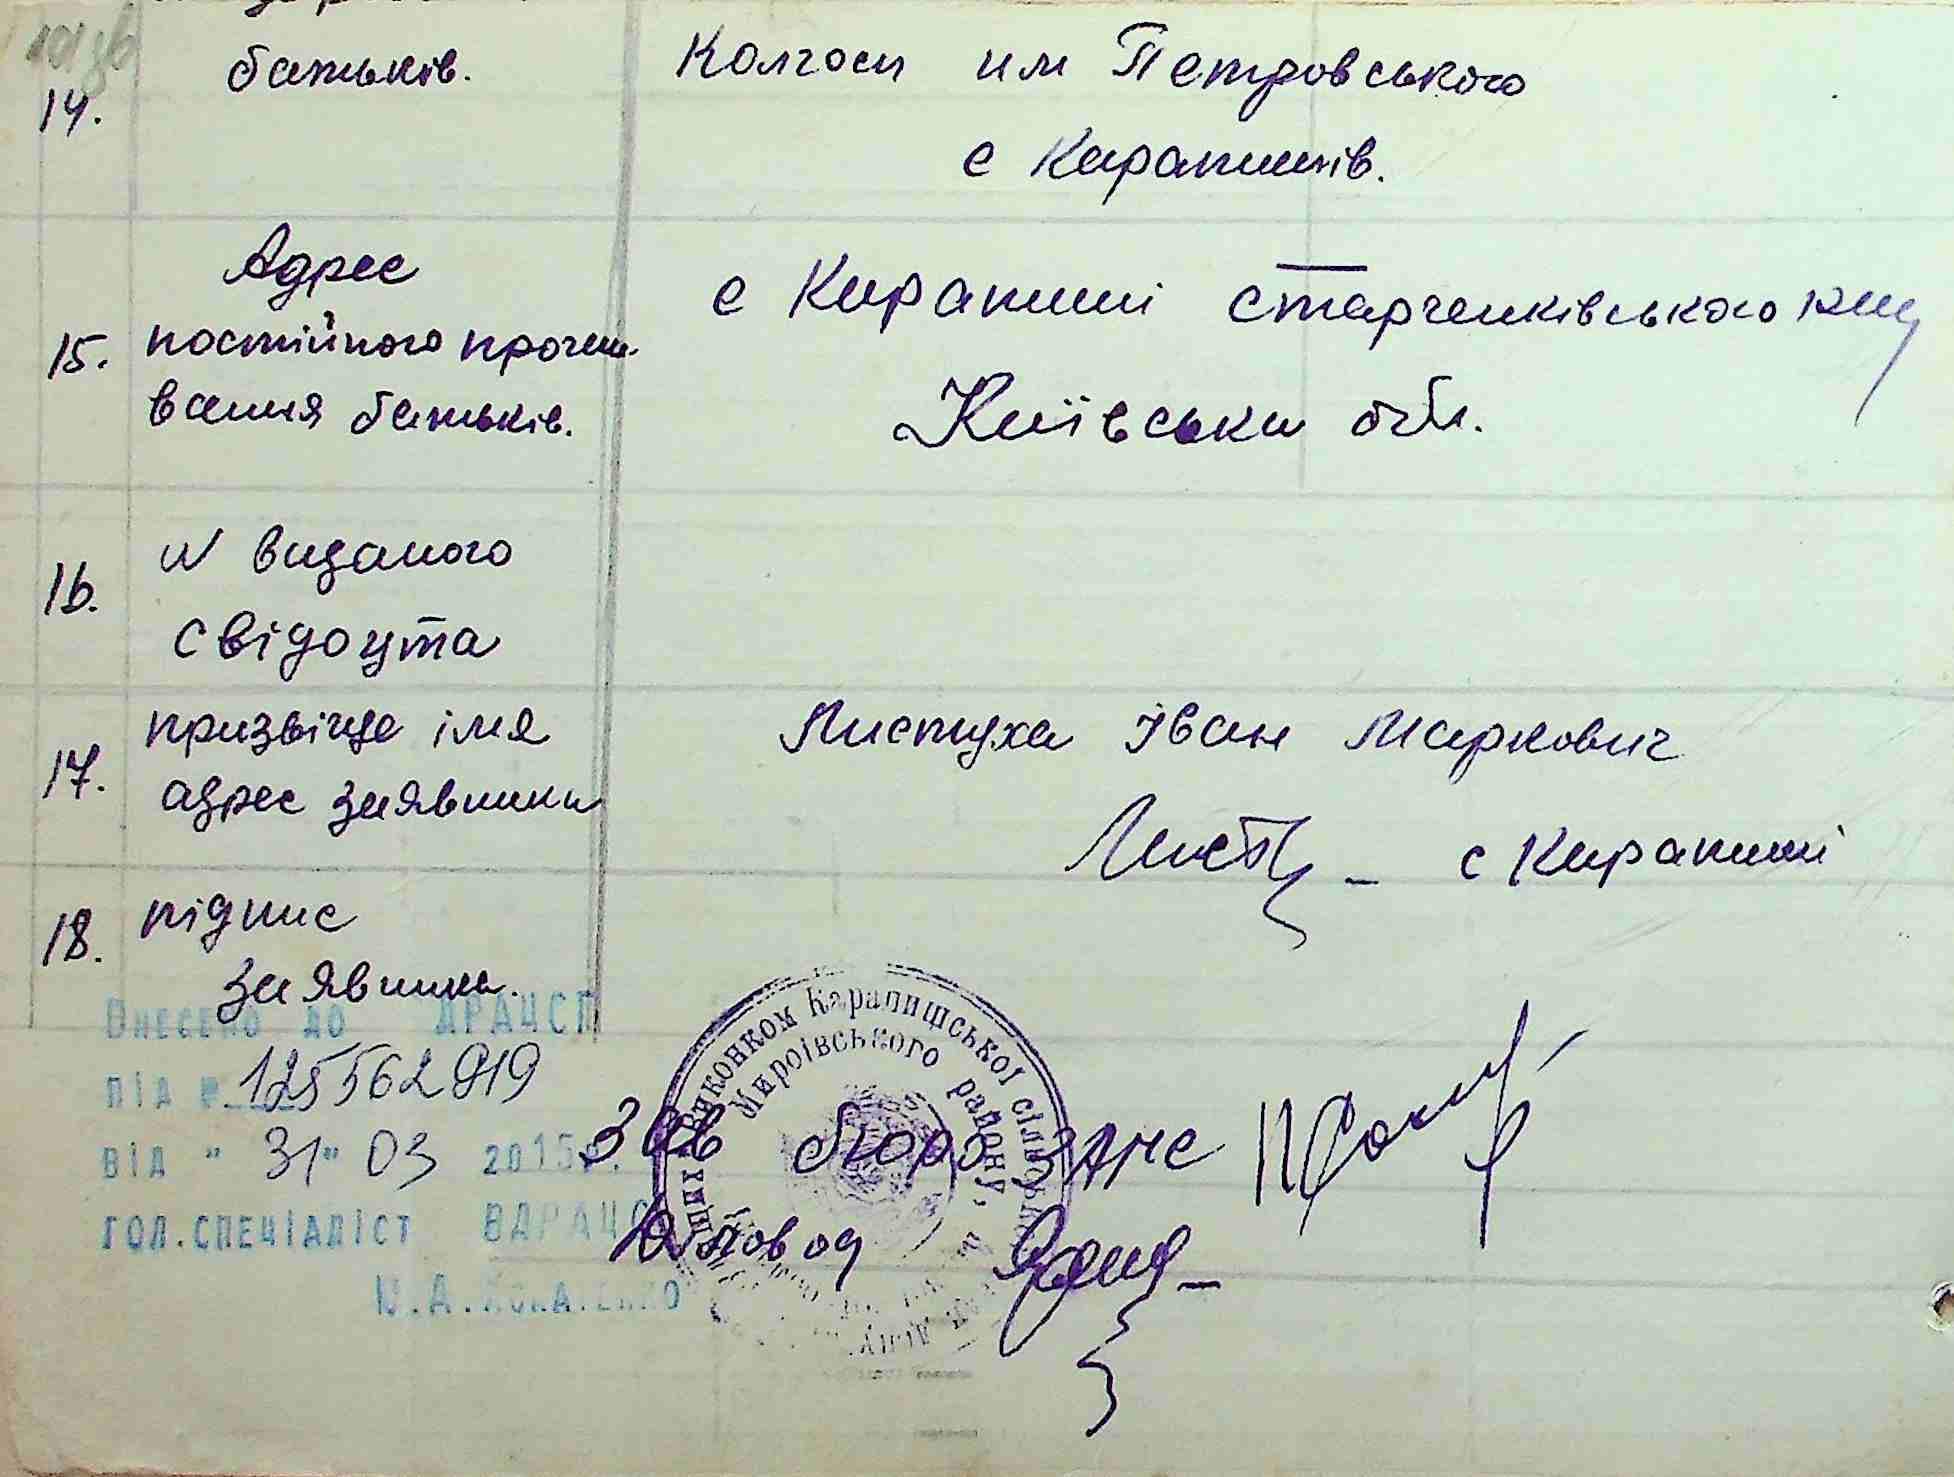 14. батьків. Колгосп им Петровського
с Карапишів.
Адрес
15. постійного прожи-
вання батьків.
с Карапиші Старченківського р-ну
Київська обл.
16. N виданого
свідоцтва
17. призвіще імя
адрес заявника
Листуха Іван Маркович
Лист - с Карапиші
18. підпис
заявника.
Внесено до ДРАЦСГ
під № 125562919
від "31" 03 2015р.
гол.спеціаліст ВДРАЦС
Ю.А.
Виконком Карапишської сільської
Миронівського району,
Зав бюро ЗАГС
Діловод